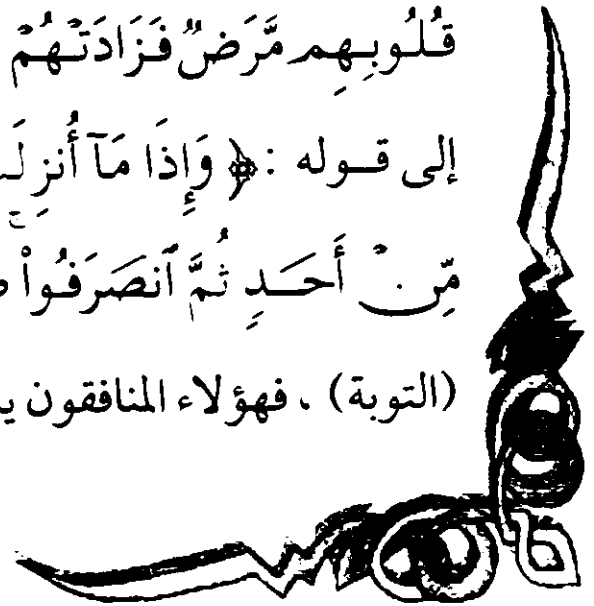 قُلُوبِهِم مَّرَضٌ فَزَادَتْهُمْ
إلى قوله : ﴿ وَإِذَا مَآ أُنزِلَ
مِّنْ أَحَدٍ ثُمَّ ٱنصَرَفُوا۟
(التوبة) ، فهؤلاء المنافقون